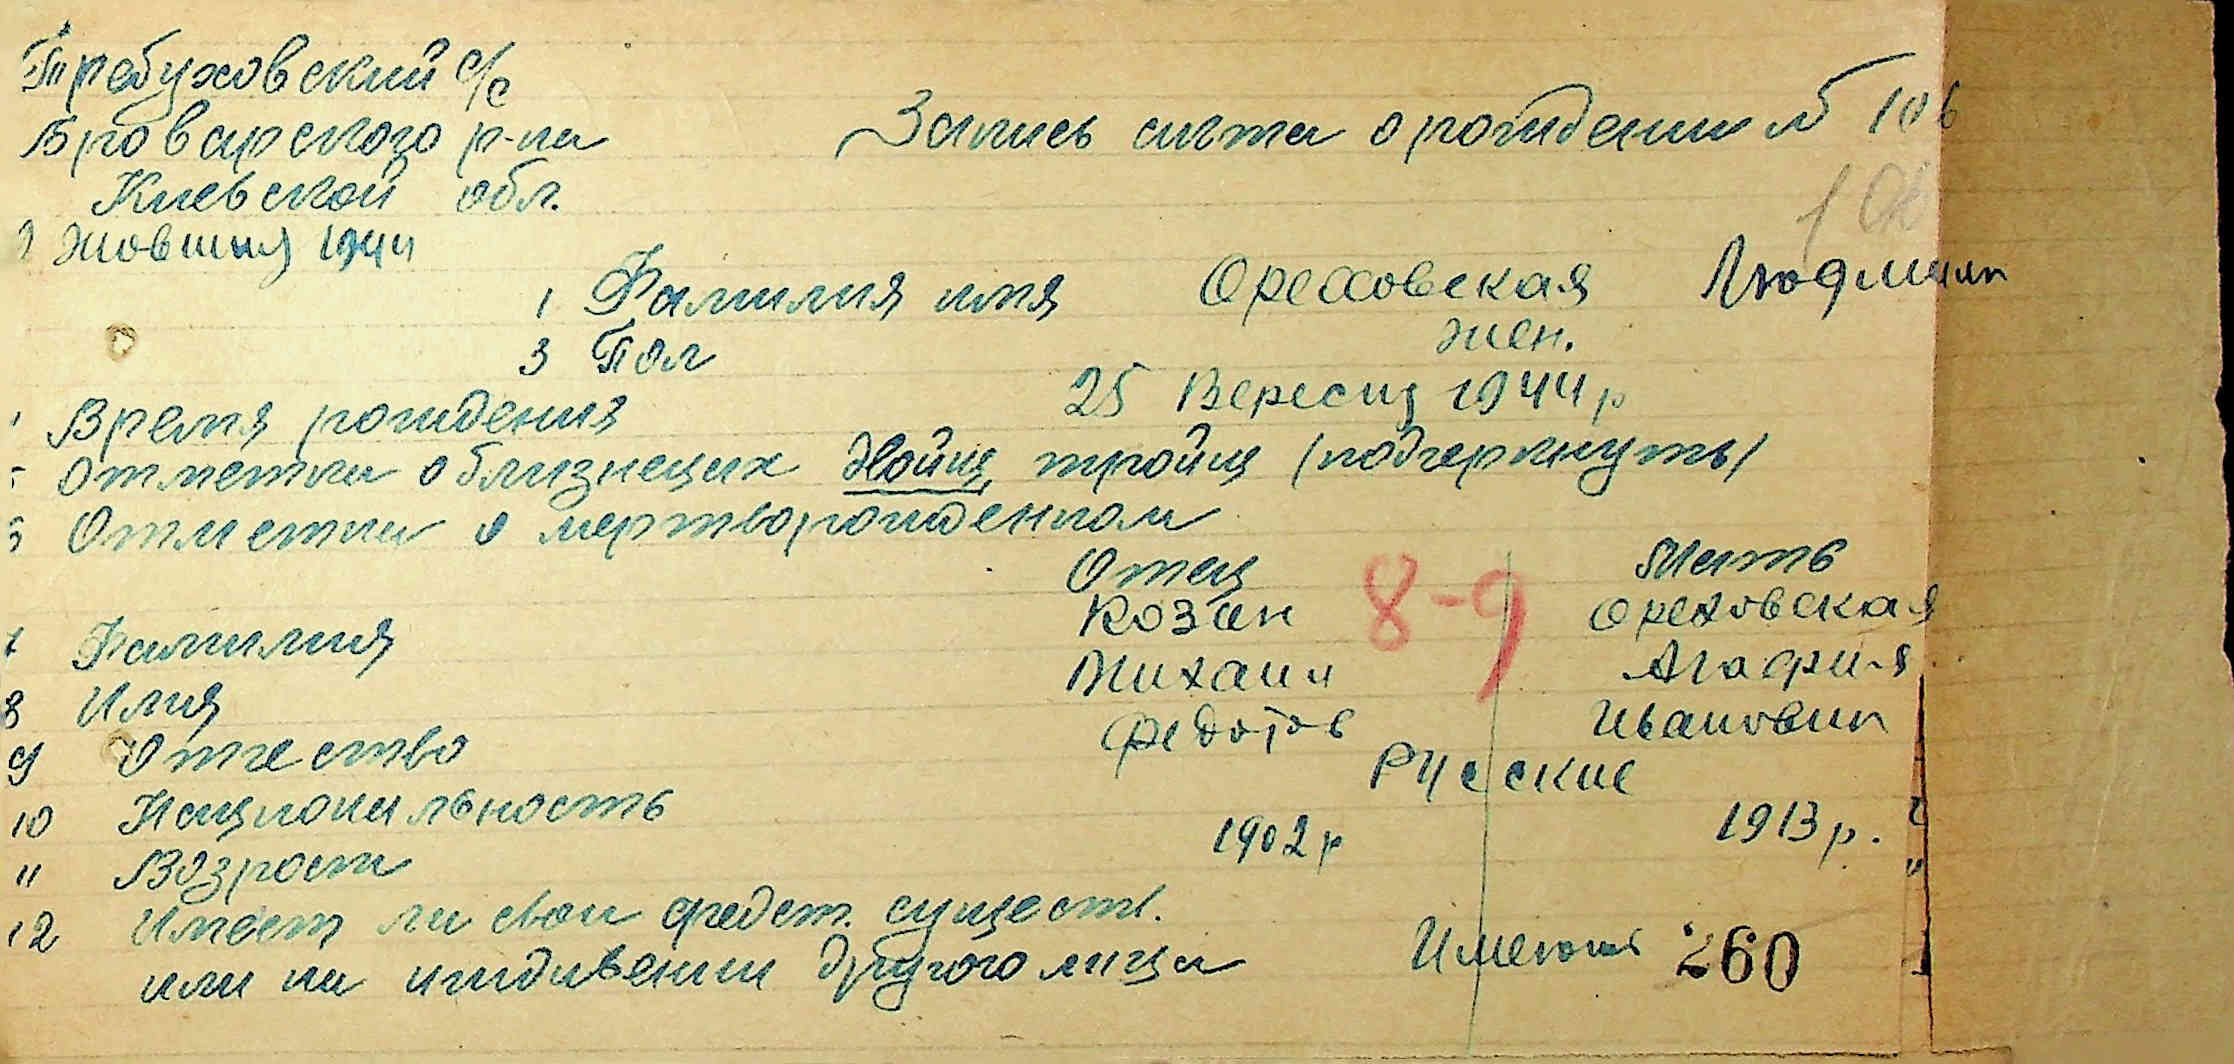 Требуховский с/с
Броварского р-на
Киевской обл.
Запись акта о рождении № 106
106
жовтня 1944
1 Фамилия имя Ореховская Людмила
3 Пол жен.
Время рождения 25 Вересня 1944 р
Отметка о близнецах двойня, тройня (подчеркнуть)
Отметка о мертворожденном
Отец 8-9 Мать
Фамилия Козан Ореховская
8 Имя Михаил Агафия
9 Отчество Федотов Ивановна
10 Национальность Русские
11 Возраст 1902 р 1913 р.
12 Имеет ли свои средст. существ.
или на иждивении другого лица Имеют 260